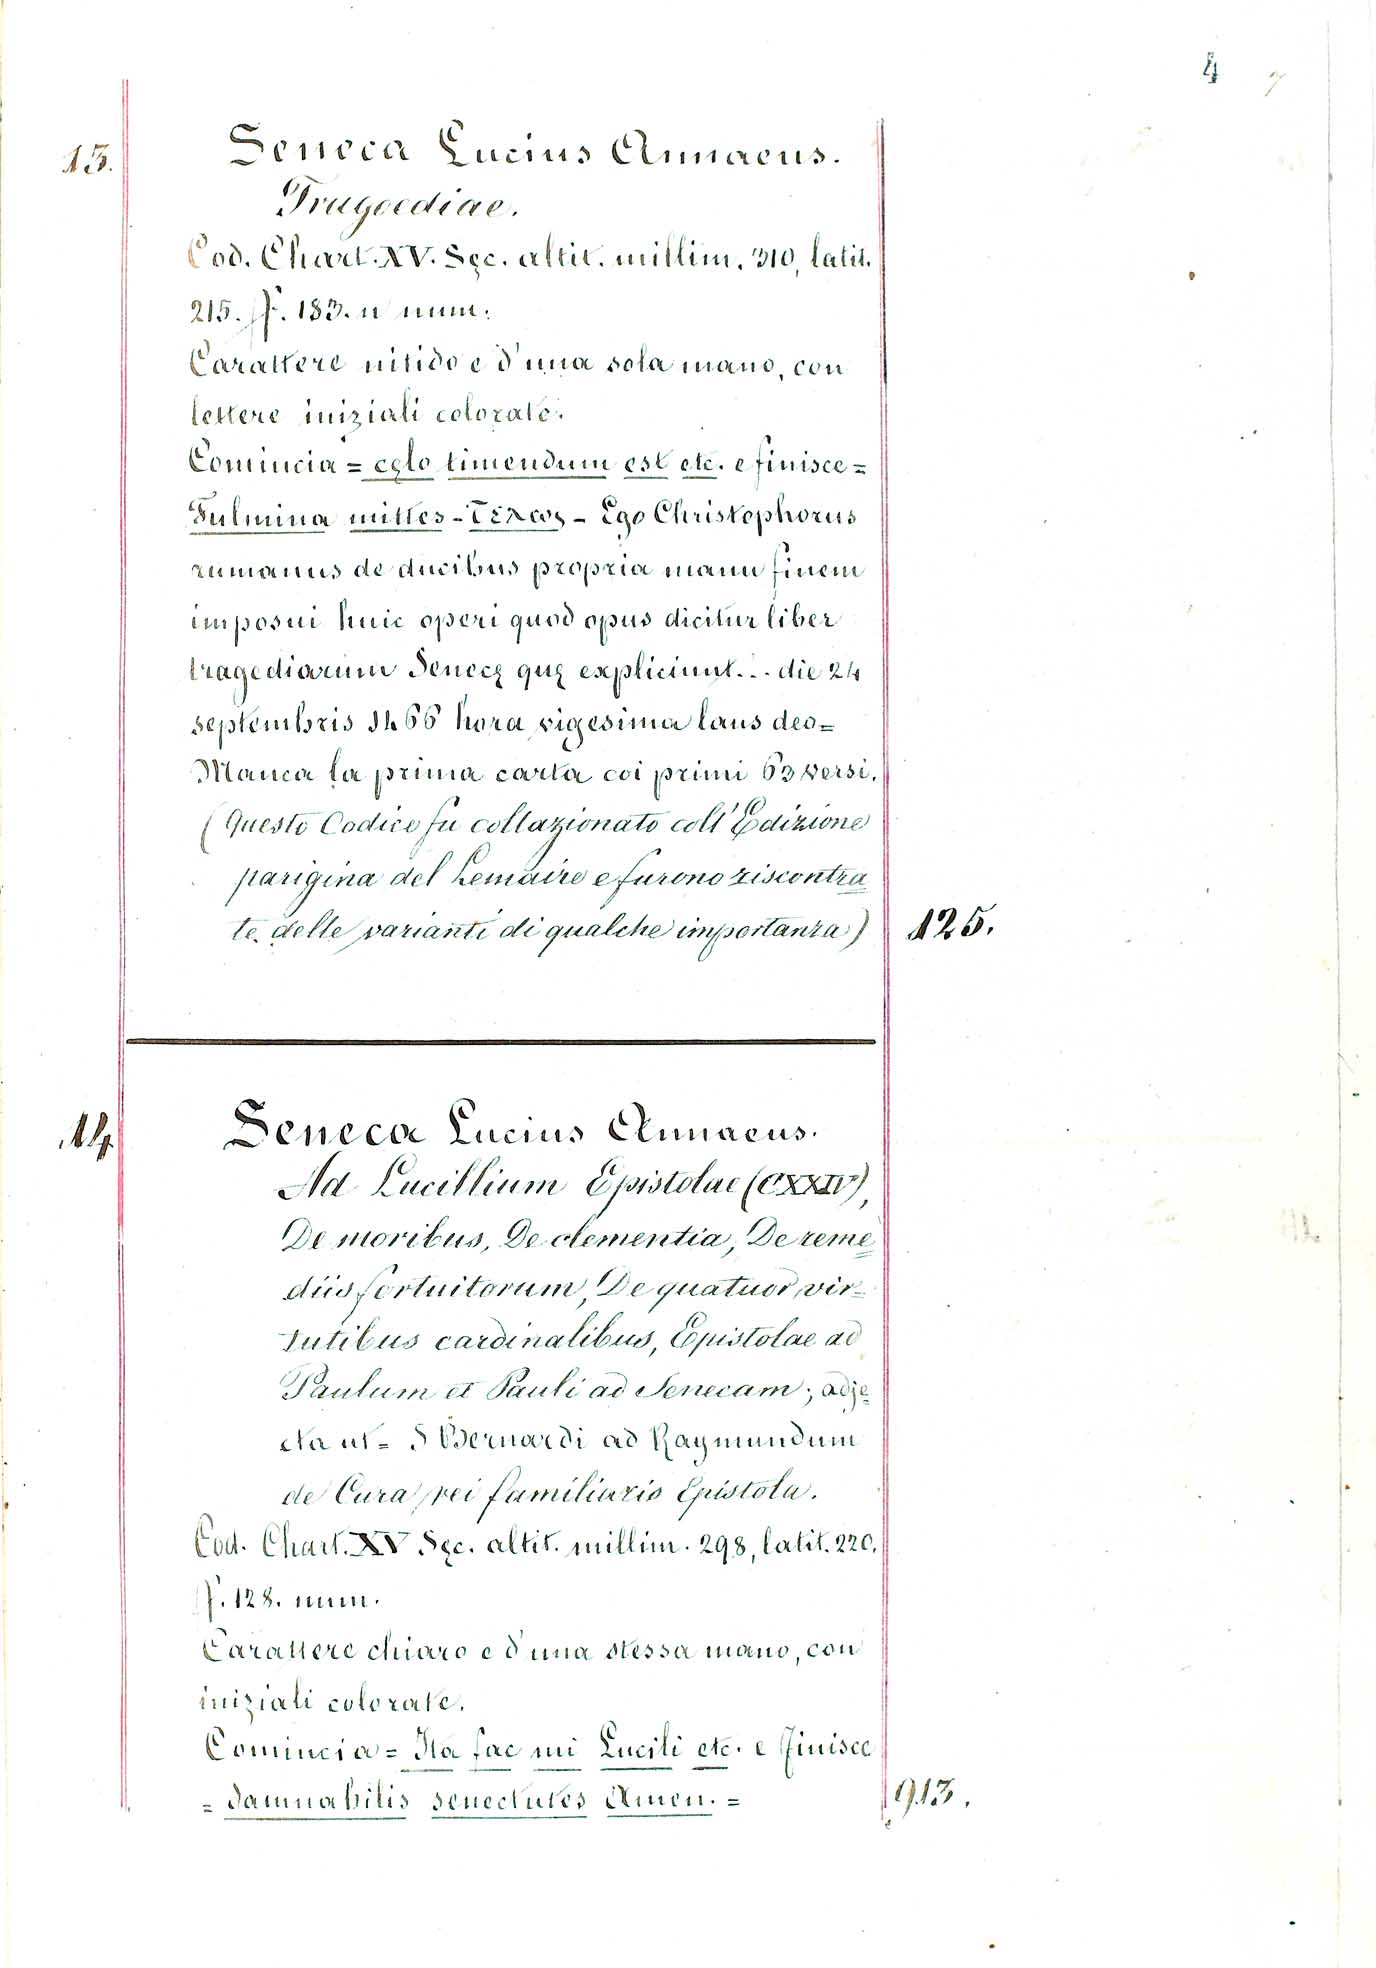 4 7
13. Seneca Lucius Annaeus.
Tragoediae.
Cod. Chart. XV. Sęc. altit. millim. 310, latit.
215. ff. 183. n num.
Carattere nitido e d'una sola mano, con
lettere iniziali colorate.
Comincia = cęlo timendum est etc. e finisce =
Fulmina mittes - Τελως - Ego Christophorus
rumanus de ducibus propria manu finem
imposui huic operi quod opus dicitur liber
tragediarum Senecę quę expliciunt... die 24
septembris 1466 hora vigesima laus deo =
Manca la prima carta coi primi 63 versi.
(Questo Codice fu collazionato coll'Edizione
parigina del Lemaire e furono riscontra=
te delle varianti di qualche importanza) 125.
14. Seneca Lucius Annaeus.
Ad Lucillium Epistolae (CXXIV),
De moribus, De clementia, De reme=
diis fortuitorum, De quatuor vir=
tutibus cardinalibus, Epistolae ad
Paulum et Pauli ad Senecam; adje=
cta ut = S Bernardi ad Raymundum
de Cura rei familiaris Epistola.
Cod. Chart. XV Sęc. altit. millim. 298, latit. 220.
ff. 128. num.
Carattere chiaro e d'una stessa mano, con
iniziali colorate.
Comincia = Ita fac mi Lucili etc. e finisce
= damnabilis senectutes Amen. = 913.